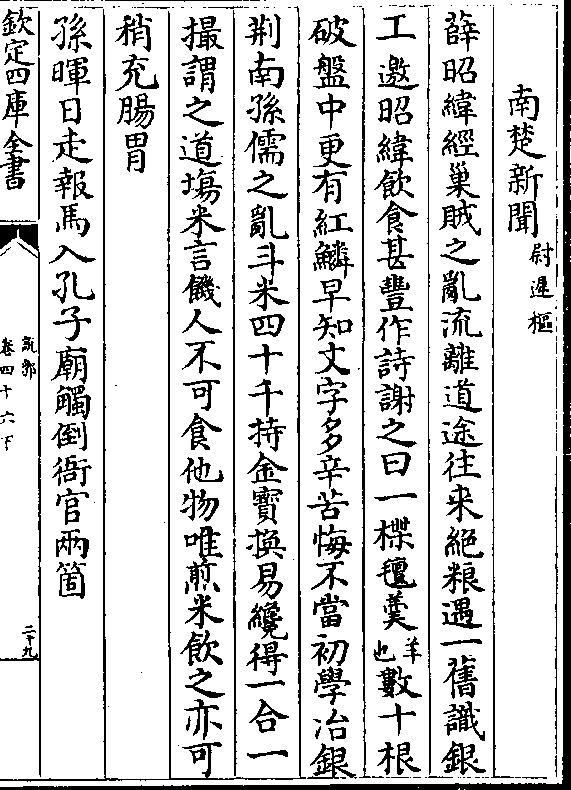 南楚新聞尉遲樞
薛昭緯經巢賊之亂流離道途往来絶粮遇一舊識銀
工邀昭緯飲食甚豐作詩謝之曰一楪氊羮羊也數十根
破盤中更有紅鱗早知文字多辛苦悔不當初學冶銀
荆南孫儒之亂斗米四十千持金寳換易纔得一合一
撮謂之道塲米言饑人不可食他物唯煎米飲之亦可
稍充腸胃
孫暉日走報馬入孔子廟觸倒衙官兩箇
欽定四庫全書
説郛
卷四十六下
二十九